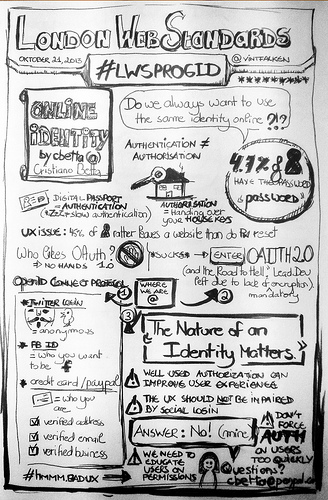 LONDON WEB STANDARDS
OCTOBER 21, 2013
@VINTFALKEN
#LWSPROGID
ONLINE
IDENTITY
by cbetta @
Cristiano Betta
Do we always want to use
the same identity online ?!?
AUTHENTICATION ≠
AUTHORISATION
4.7% of
HAVE THE PASSWORD
"password"
DIGITAL PASSPORT
= AUTHENTICATION
(zZz = slow authentication)
AUTHORISATION
= Handing over
your HOUSE KEYS
UX ISSUE: 45% of rather leaves a website than do PW reset
Who likes OAuth?
=> NO HANDS 1.0
*SUCKS*
ENTER OAUTH 2.0
(and the Road to Hell, Lead Dev
left due to lack of encryption)
mandatory
OpenID CONNECT PROTOCOL
1
WHERE
WE ARE
@
2
3
* TWITTER LOGIN
= anonymous
* FB ID
= who you want
to be
* credit card / paypal
= who you
are
verified address
verified email
verified business
#HMMM.BADUX
"The Nature of an
Identity Matters."
WELL USED AUTHORIZATION CAN
IMPROVE USER EXPERIENCE
THE UX SHOULD NOT BE IMPAIRED
BY SOCIAL LOGIN
ANSWER: NO! (mine)
DON'T
FORCE
AUTH
ON USERS
TOO QUICKLY
WE NEED TO
EDUCATE
USERS ON
PERMISSIONS
Questions?